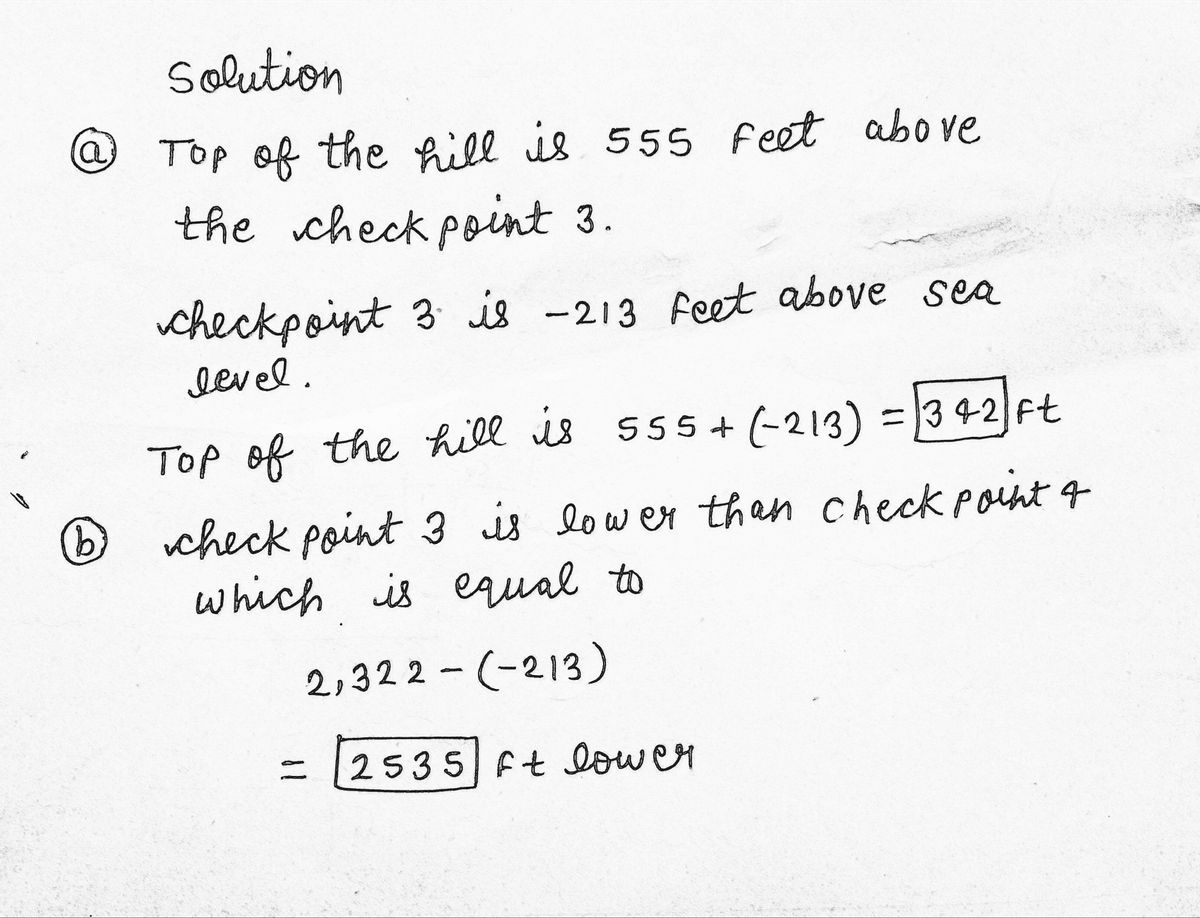 Solution
ⓐ Top of the hill is 555 feet above
the checkpoint 3.
checkpoint 3 is -213 feet above sea
level.
Top of the hill is 555+(-213) = 342 ft
ⓑ checkpoint 3 is lower than checkpoint 4
which is equal to
2,322-(-213)
= 2535 ft lower